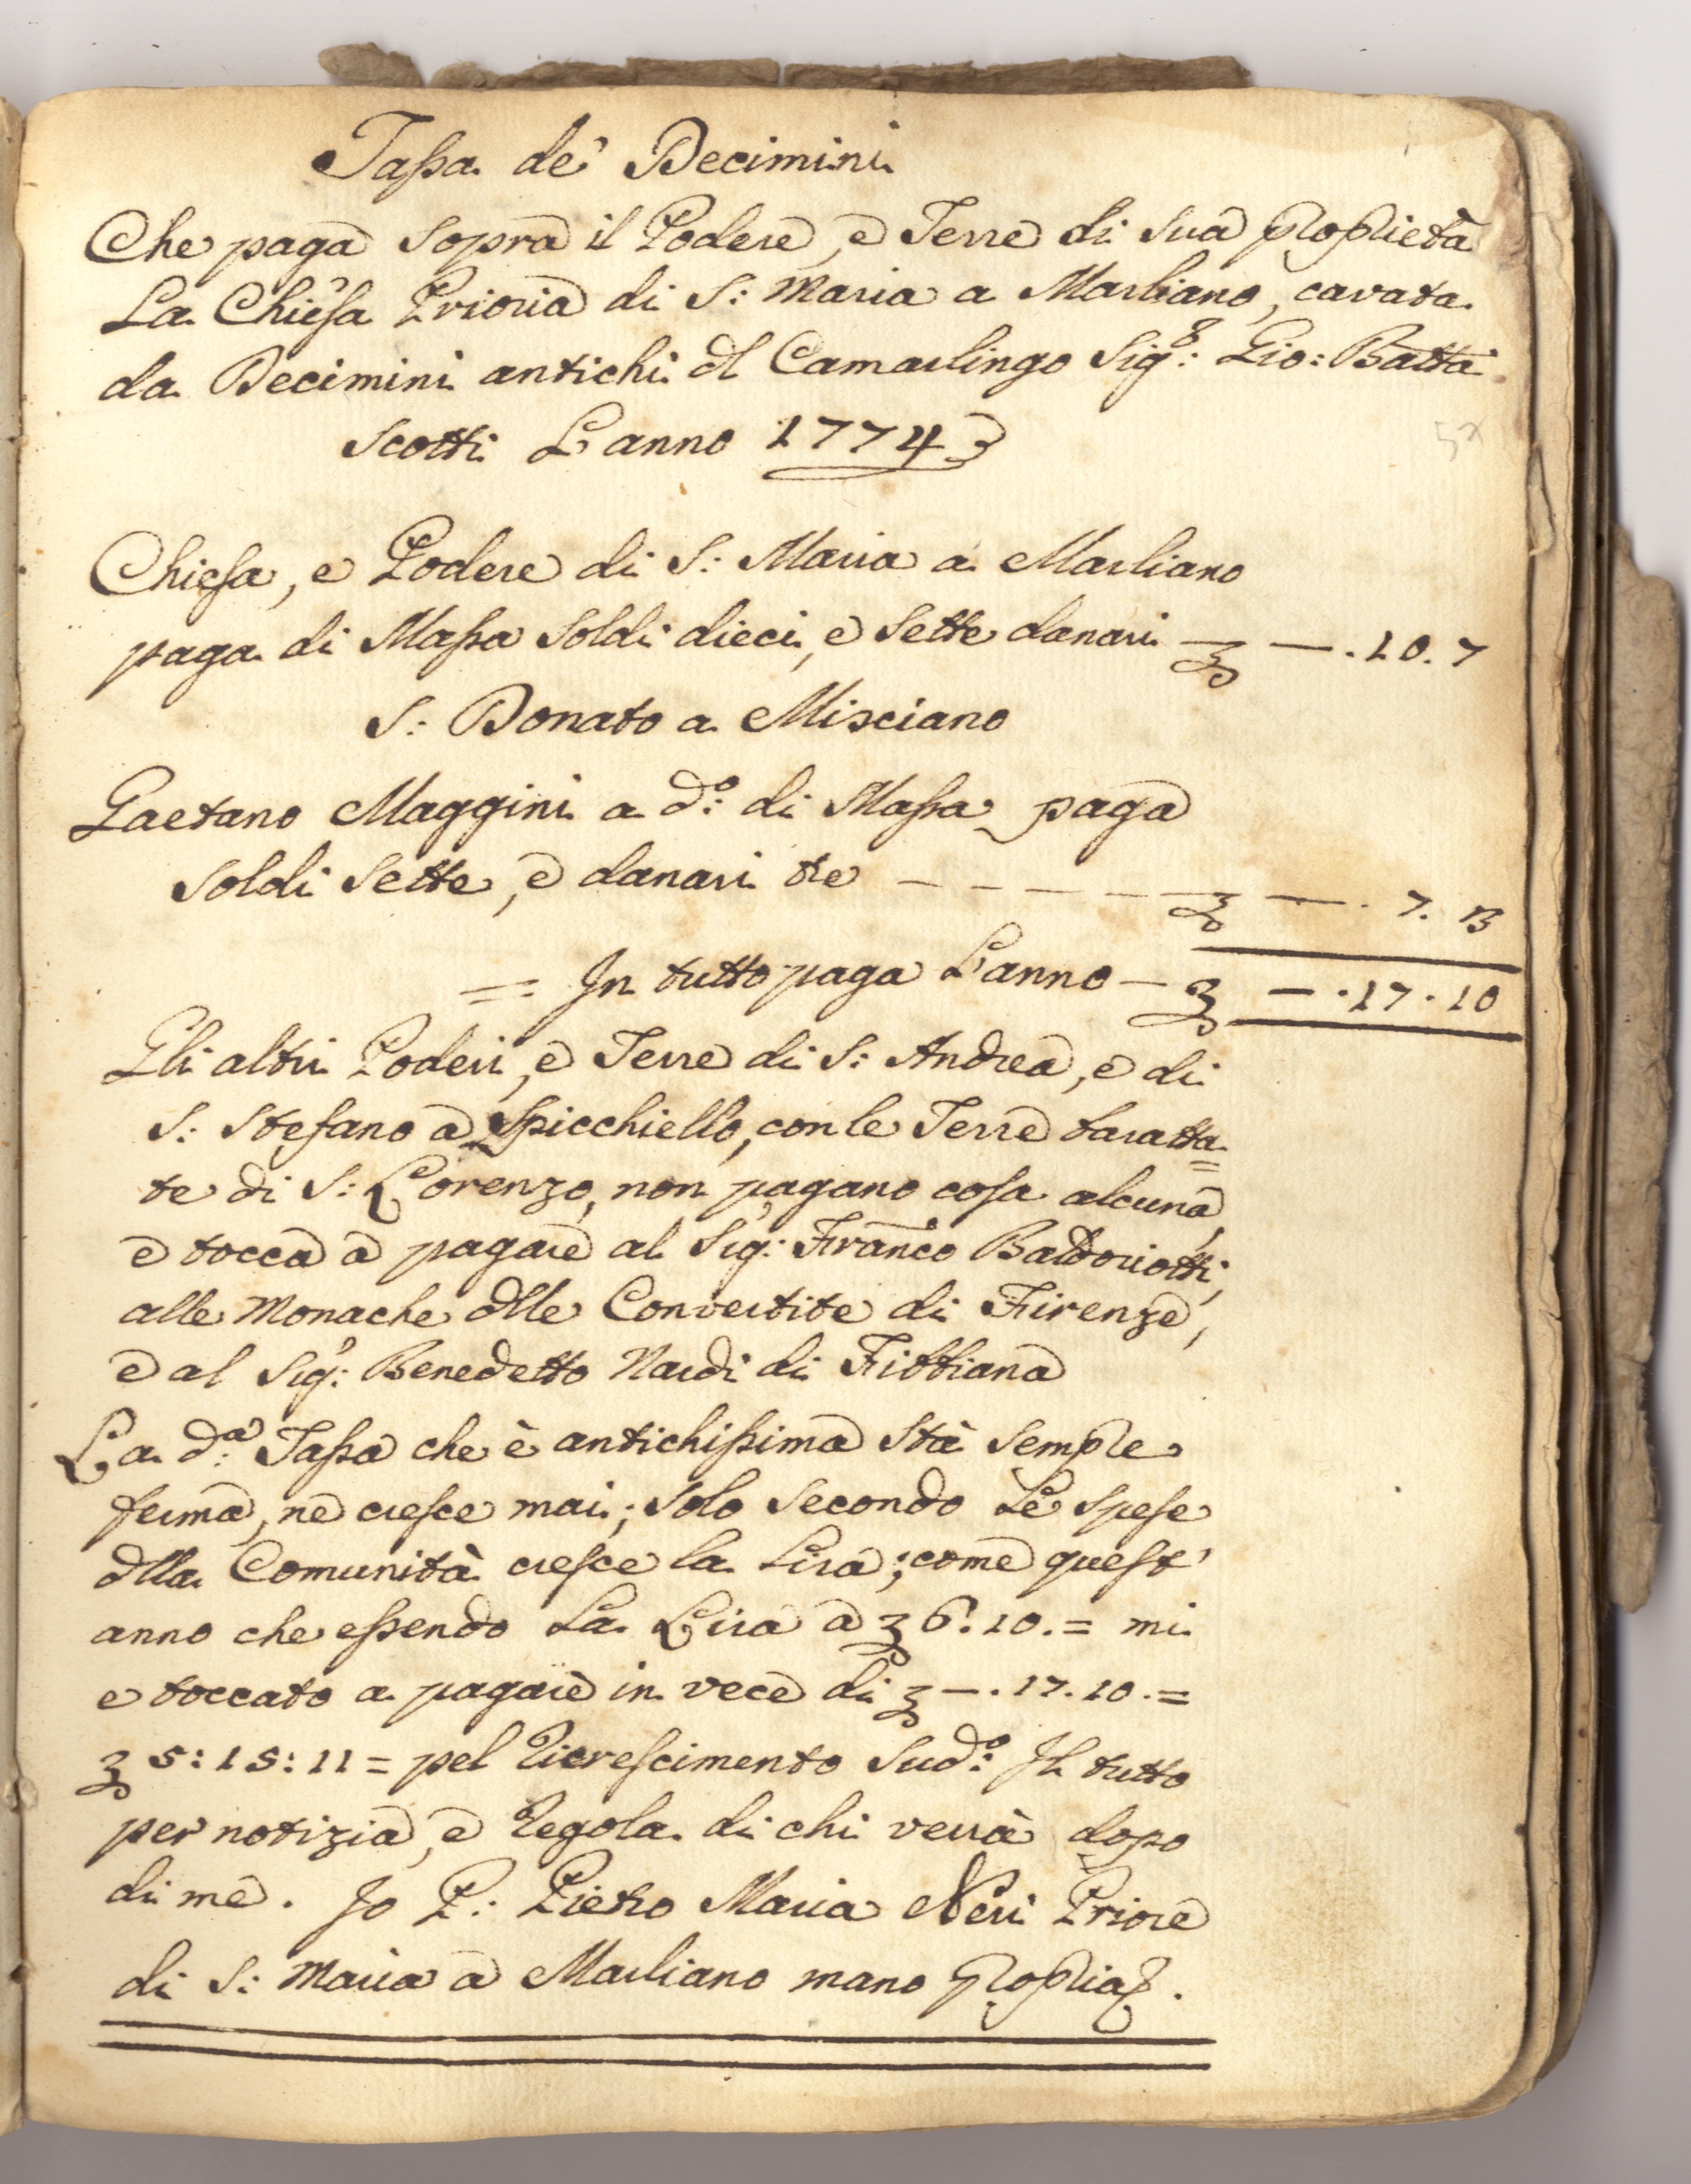 Tassa de' Decimini
Che paga sopra il Podere, e Terre di sua proprietà
La Chiesa Prioria di S: Maria a Marliano, cavata
da Decimini antichi dl Camarlingo Sig.r: Gio: Batta
Scotti L'anno 1774
Chiesa, e Podere di S: Maria a Marliano
paga di Massa soldi dieci, e sette danari — . 10. 7
S: Donato a Misciano
Gaetano Maggini a d.o: di Massa paga
soldi sette, e danari tre — — — — — — . 7. 3
=: In tutto paga L'anno — — . 17 . 10
Gli altri Poderi, e Terre di S: Andrea, e di
S: Stefano a Spicchiello, con le Terre baratta=
te di S: Lorenzo, non pagano cosa alcuna,
e tocca a pagare al Sig.r: Franco Baldoriotti,
alle Monache dlle Convertite di Firenze,
e al Sig.r: Benedetto Nardi di Fibbiana
La d.a: Tassa che è antichissima stà sempre
ferma, ne cresce mai; solo secondo le spese
dlla Comunità cresce la Lira; come quest'
anno che essendo La Lira a 6: 10. = mi
e toccato a pagare in vece di — . 17. 10 . =
5: 15: 11 = pel ricrescimento sud.o: Il tutto
per notizia, e regola di chi verrà dopo
di me. Io P: Pietro Maria Neri Priore
di S: Maria a Marliano mano propria.